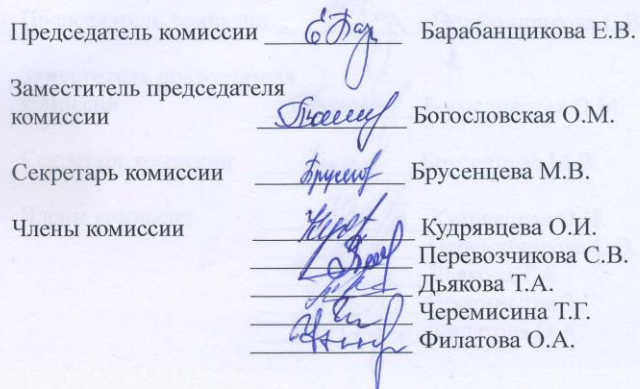 Председатель комиссии Барабанщикова Е.В.
Заместитель председателя
комиссии Богословская О.М.
Секретарь комиссии Брусенцева М.В.
Члены комиссии Кудрявцева О.И.
Перевозчикова С.В.
Дьякова Т.А.
Черемисина Т.Г.
Филатова О.А.